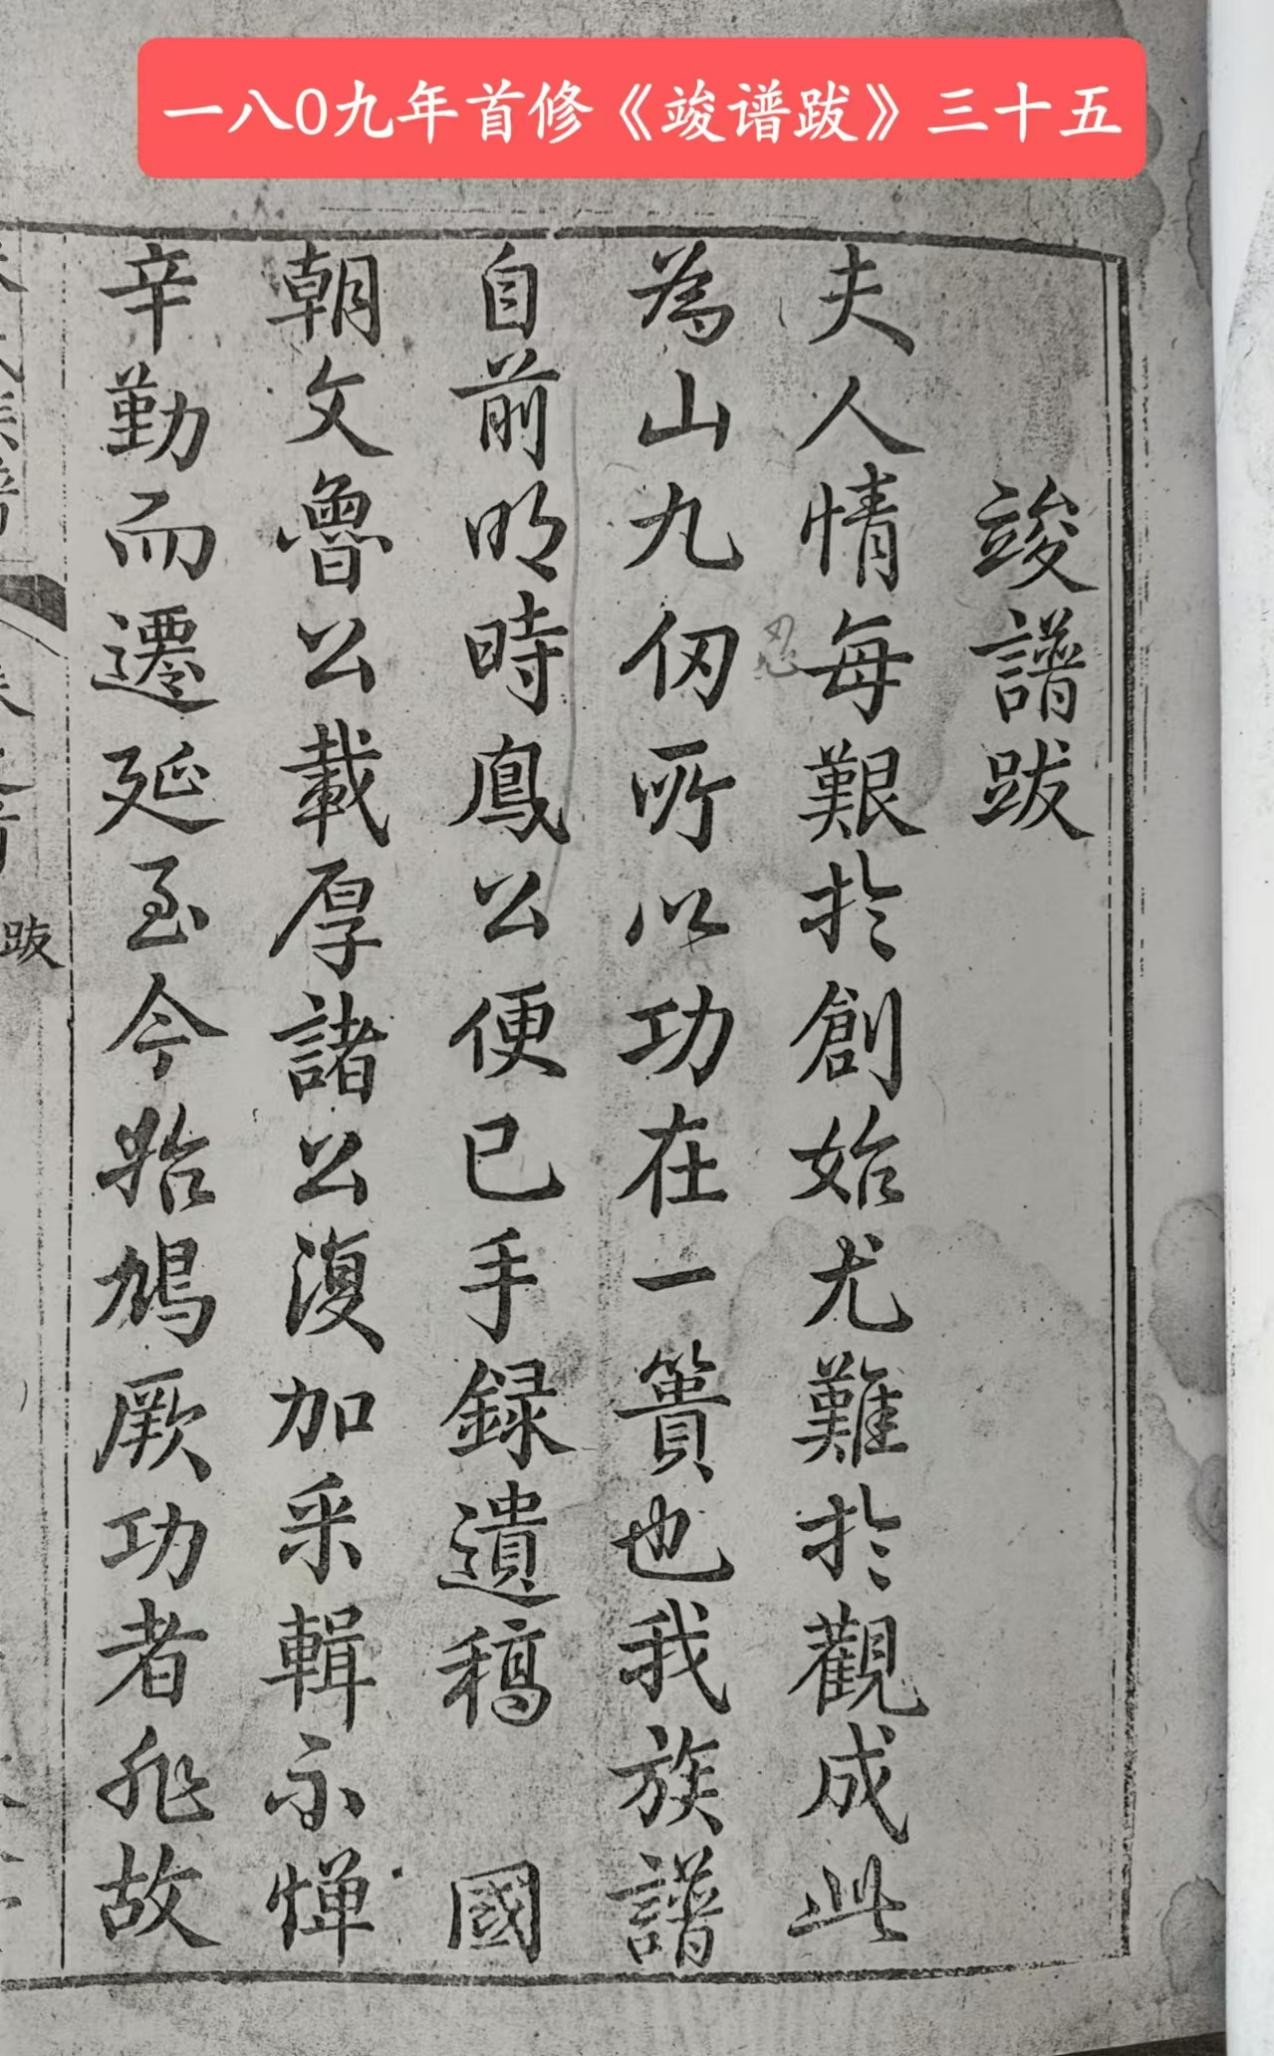 一八0九年首修《竣谱跋》三十五
竣譜跋
夫人情每艱於創始尤難於觀成此
為山九仞所以功在一簣也我族譜
自前明時鳳公便已手録遺稿 國
朝文魯公載厚諸公復加采輯不憚
辛勤而遷延至今始鳩厥功者非故
忍
跋